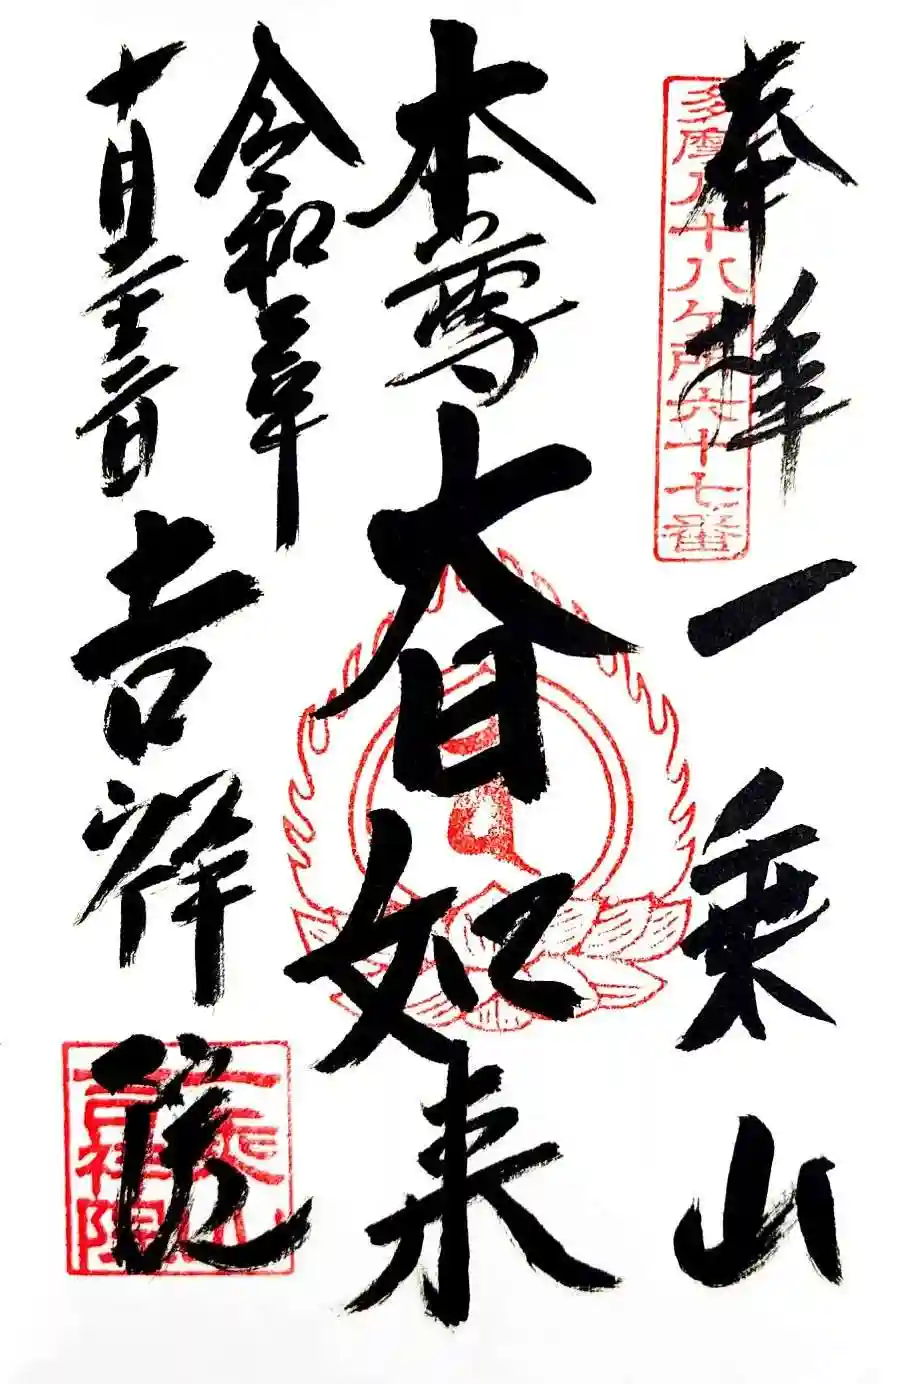 奉拝
多摩八十八ケ所六十七番
一乗山
本尊
大日如来
令和二年
十月二十六日
吉祥院
一乗山
吉祥院